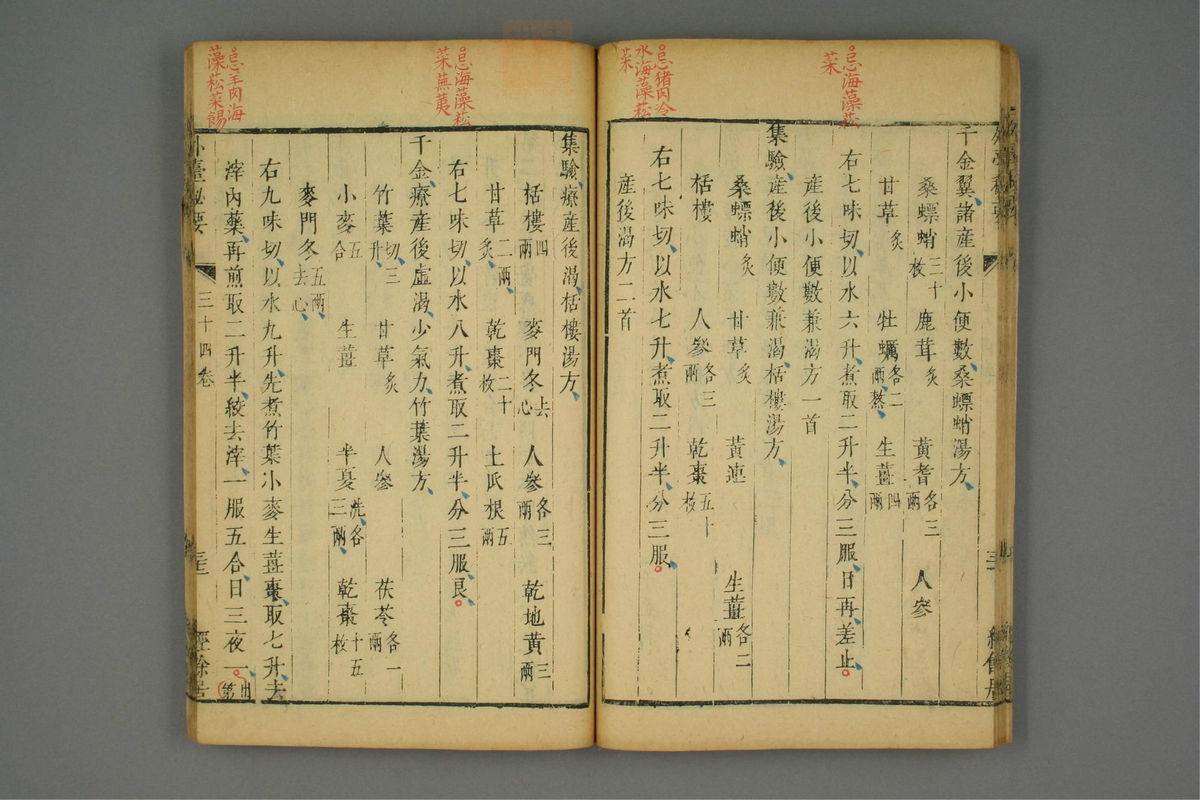 忌海藻菘
菜
忌猪肉冷
水海藻菘
菜
千金翼諸産後小便數桑螵蛸湯方
桑螵蛸三十枚 鹿茸炙 黄耆各三兩 人參
甘草炙 牡蠣各二兩熬 生薑四兩
右七味切以水六升煮取二升半分三服日再差止
産後小便數兼渴方一首
集驗産後小便數兼渴栝樓湯方
桑螵蛸炙 甘草炙 黃連 生薑各二兩
栝樓 人參各三兩 乾棗五十枚
右七味切以水七升煮取二升半分三服
産後渴方二首
忌海藻菘
菜蕪荑
忌羊肉海
藻菘菜餳
集驗療産後渴栝樓湯方
栝樓四兩 麥門冬去心 人參各三兩 乾地黃三兩
甘草二兩炙 乾棗二十枚 土瓜根五兩
右七味切以水八升煮取二升半分三服良
千金療産後虛渴少氣力竹葉湯方
竹葉切三升 甘草炙 人參 茯苓各一兩
小麥五合 生薑 半夏洗各三兩 乾棗十五枚
麥門冬五兩去心
右九味切以水九升先煮竹葉小麥生薑棗取七升去
滓內藥再煎取二升半絞去滓一服五合日三夜一出第
外臺秘要 三十四卷 經餘居